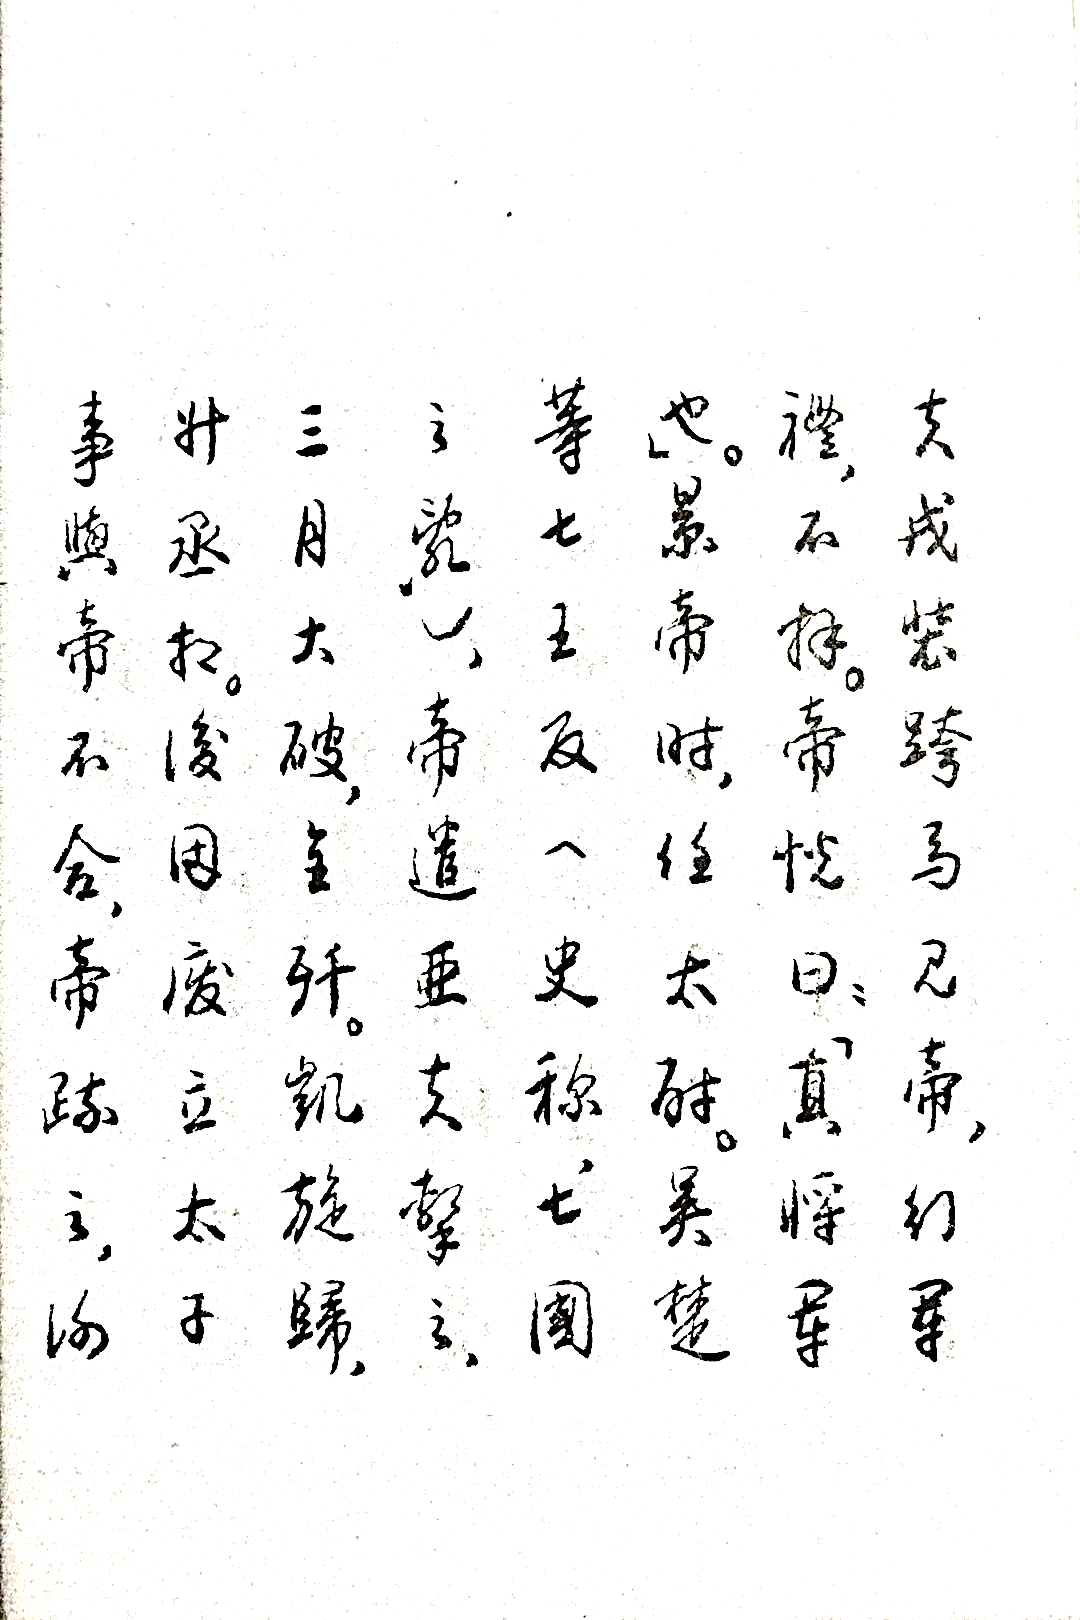 夫戎裝跨馬見帝,行軍
禮,不拜。帝悦曰:「真將軍
也」。景帝時,任太尉。吳楚
等七王反(史稱、七國
之亂),帝遣亞夫擊之、
三月大破,全歼。凱旋歸,
升丞相。後因廢立太子
事與帝不合,帝疏之,谢